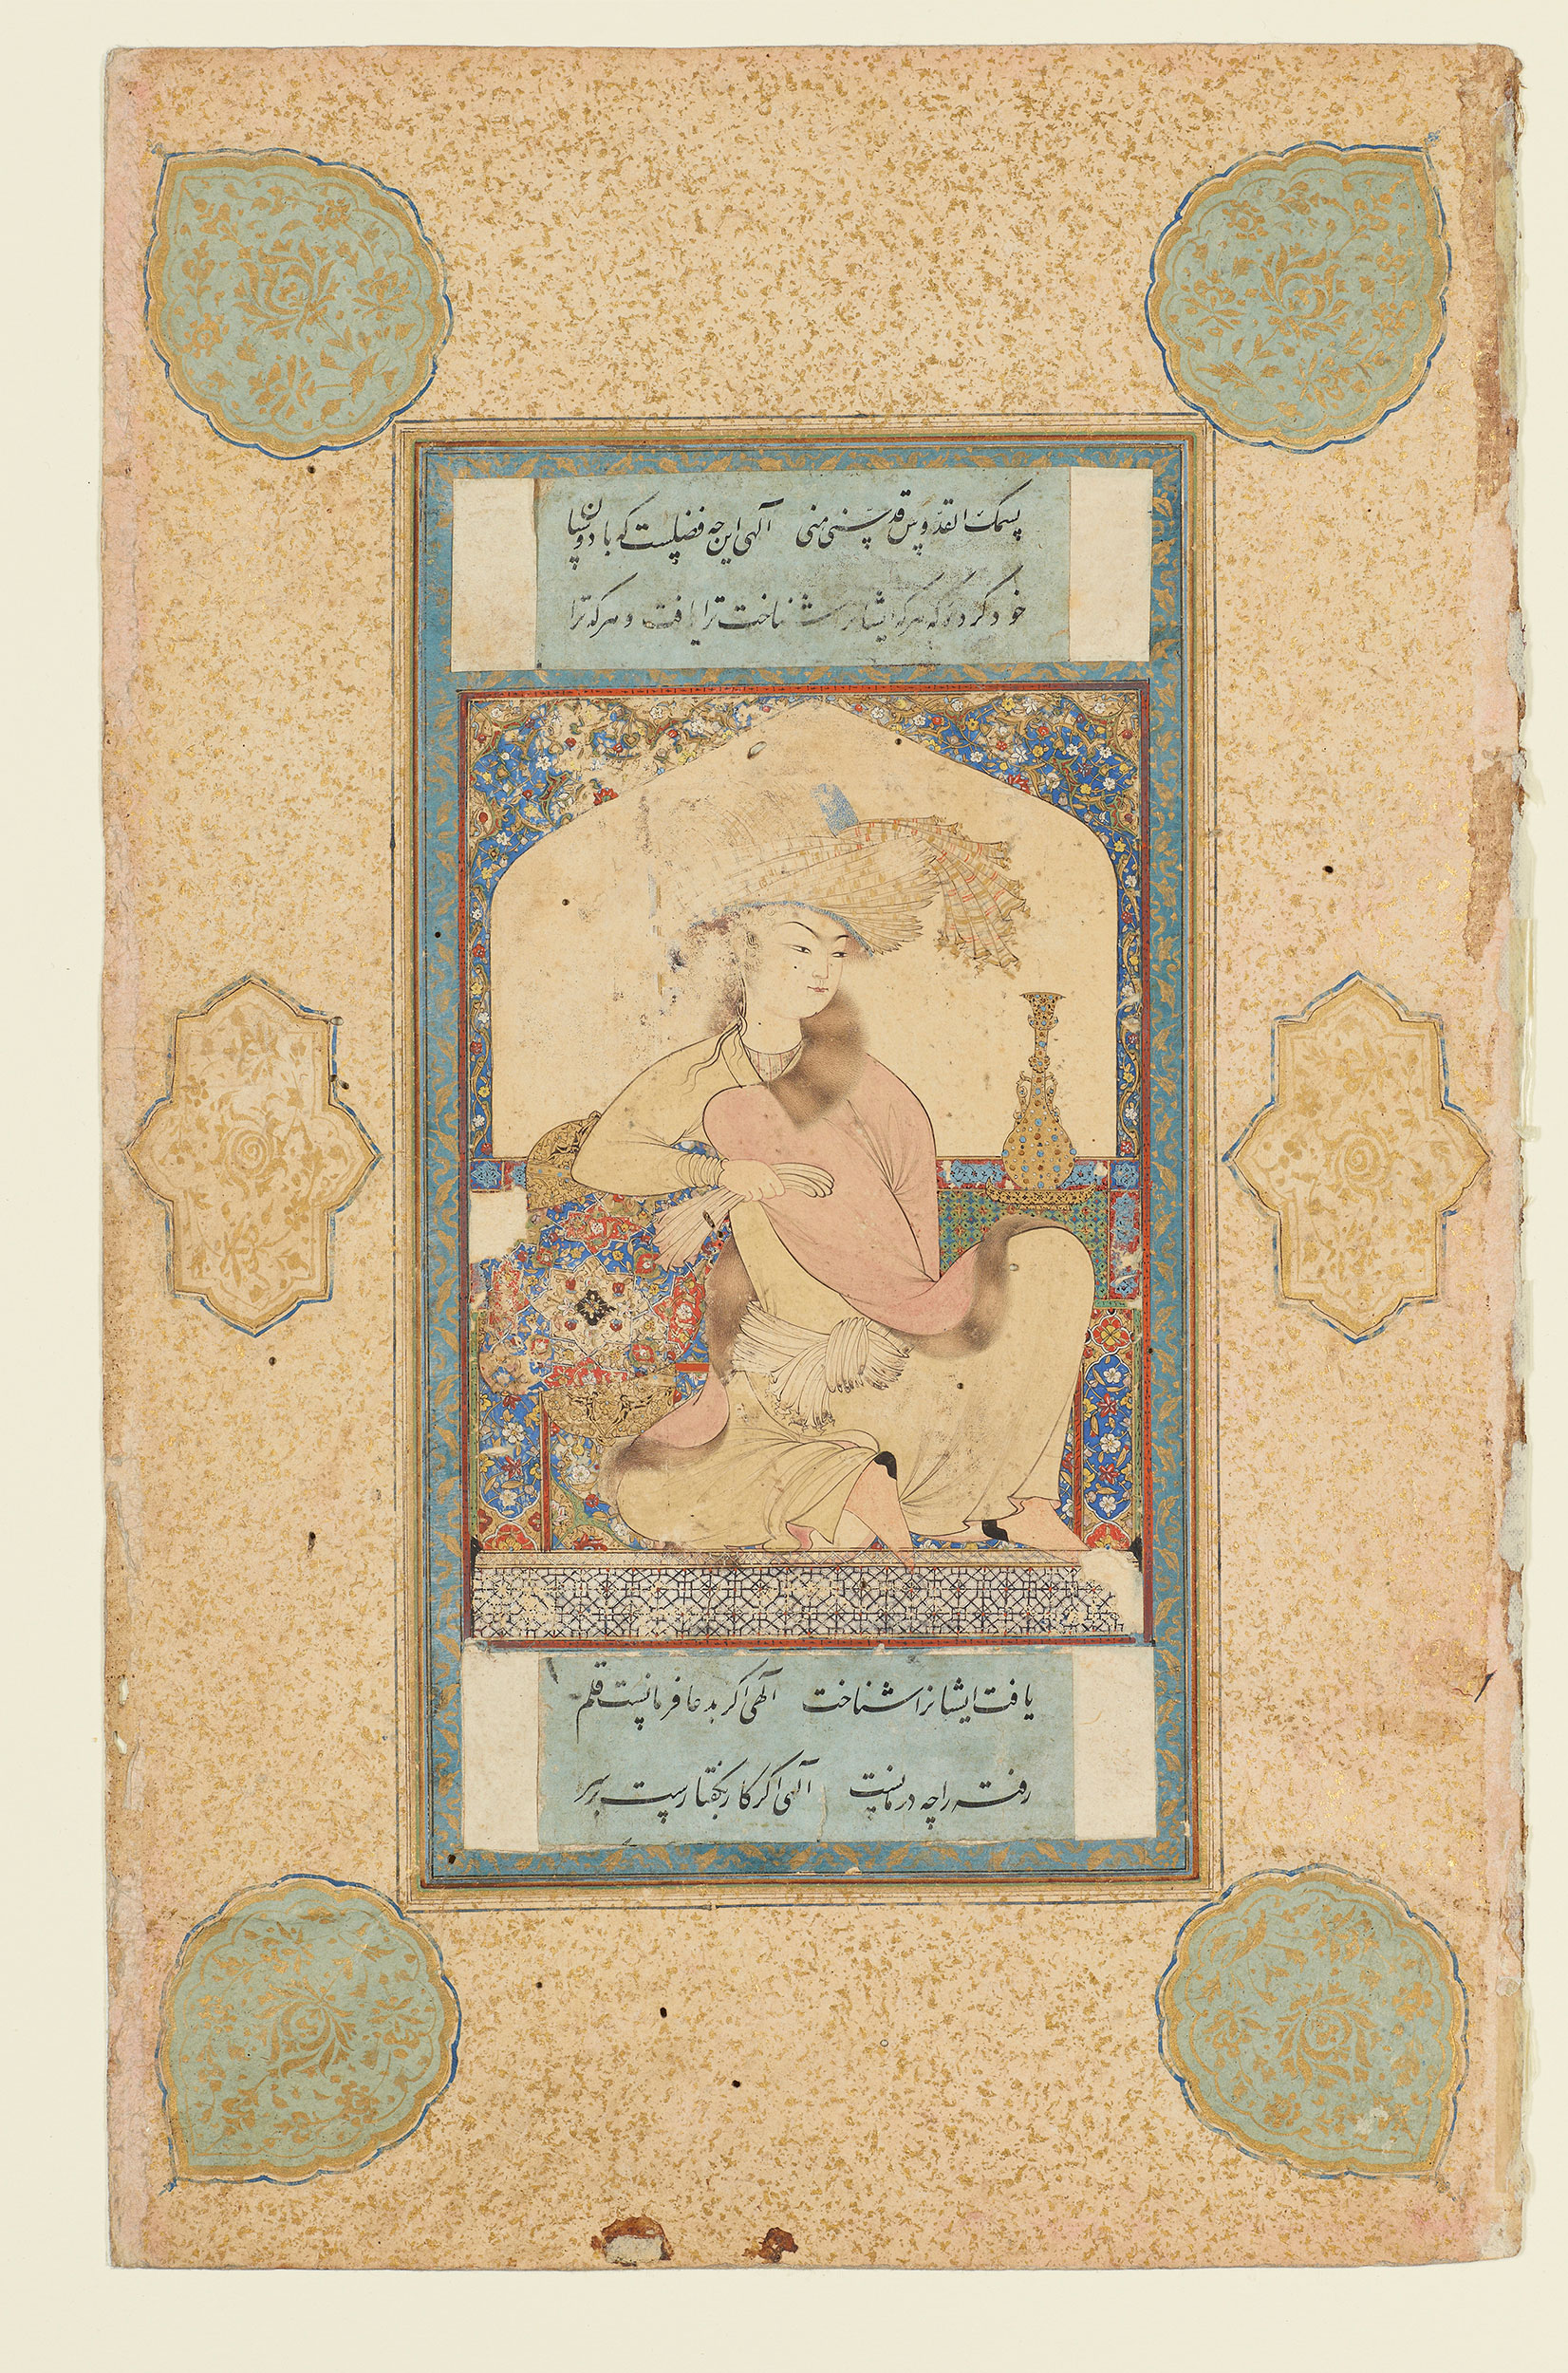 بسمک القدوس قدسنی منی الهی این چه فضلیست که با دوستان
خود کرده که هرکه ایشانرا شناخت ترا یافت و هرکه ترا
یافت ایشانرا شناخت الهی اگر بدعا فرمانست قلم
رفته را چه درمانست الهی اگر کار بگفتارست بر سر